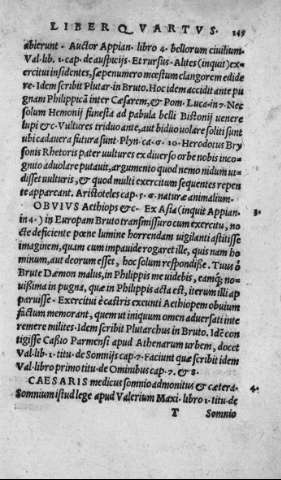 LIBER QVARTVS. 149
abierunt · Auctor Appian· libro 4· bellorum ciuilium·
Val·lib. 1 ·cap·de auspicijs· Etrursus · Alites (inquit) ex=
ercitui insidentes, sæpenumero mœstum clangorem edide
re·Idem scribit Plutar·in Bruto·Hoc idem accidit ante pu
gnam Philippicã inter Cæsarem,& Pom·Luca·in 7·Nec
solum Hemonij funesta ad pabula belli Bistonij uenere
lupi &c·Vultures triduo ante, aut biduo uolare soliti sunt
ubi cadauera futura sunt·Plyn·ca·6·10·Herodotus Bry
sonis Rhetoris pater uultures ex diuerso orbe nobis inco=
gnito aduolare putauit, argumento quod nemo nidum ui=
disset uulturis, & quod multi exercitum sequentes repen
te appareant·Aristoteles cap·5·6·naturæ animalium·
OBVIVS Aethiops &c· Ex Asia (inquit Appian· 3·
in 4·) in Europam Bruto transmissuro cum exercitu, no=
cte deficiente pœne lumine horrendam uigilanti astitisse
imaginem, quam cum impauide rogaret ille, quis nam ho
minum, aut deorum esset, hoc solum respondisse· Tuus ò
Brute Dæmon malus, in Philippis me uidebis, eamq; no=
uissima in pugna, quæ in Philippis acta est, iterum illi ap
paruisse · Exercitui è castris exeunti Aethiopem obuium
factum memorant, quem ut iniquum omen aduersati inte
remere milites·Idem scribit Plutarchus in Bruto·Idẽ con
tigisse Cassio Parmensi apud Athenarum urbem, docet
Val·lib·1·titu·de Somnijs cap·7·Faciunt quæ scribit idem
Val·libro primo titu·de Ominibus cap·7· & 8·
CAESARIS medicus somnio admonitus & cætera· 4·
Somnium istud lege apud Valerium Maxi·libro 1·titu·de
T Somnio